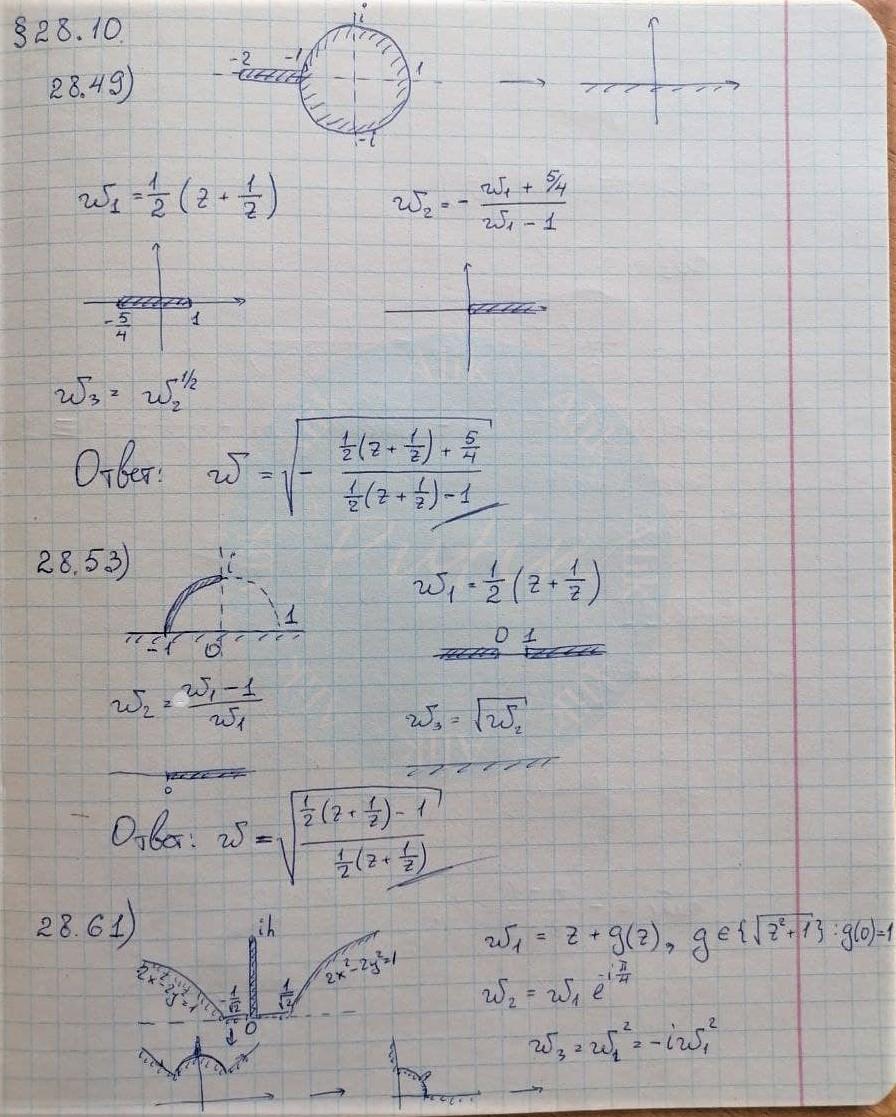 §28.10.
28.49)
i
-2 -1 1
-i
w₁ = 1/2 (z + 1/z)
w₂ = - (w₁ + 5/4)/(w₁ - 1)
-5/4 1
w₃ = w₂^{1/2}
Ответ: w = √(- (1/2(z + 1/z) + 5/4)/(1/2(z + 1/z) - 1))
28.53)
i
-1 0 1
w₁ = 1/2 (z + 1/z)
0 1
w₂ = (w₁ - 1)/w₁
w₃ = √w₂
0
Ответ: w = √((1/2(z + 1/z) - 1)/(1/2(z + 1/z)))
28.61)
ih
2x²-2y²=1 -1/√2 0 1/√2 2x²-2y²=1
w₁ = z + g(z), g ∈ {√(z²+1)} : g(0)=1
w₂ = w₁ e^{-iπ/4}
w₃ = w₁² = -iw₁²